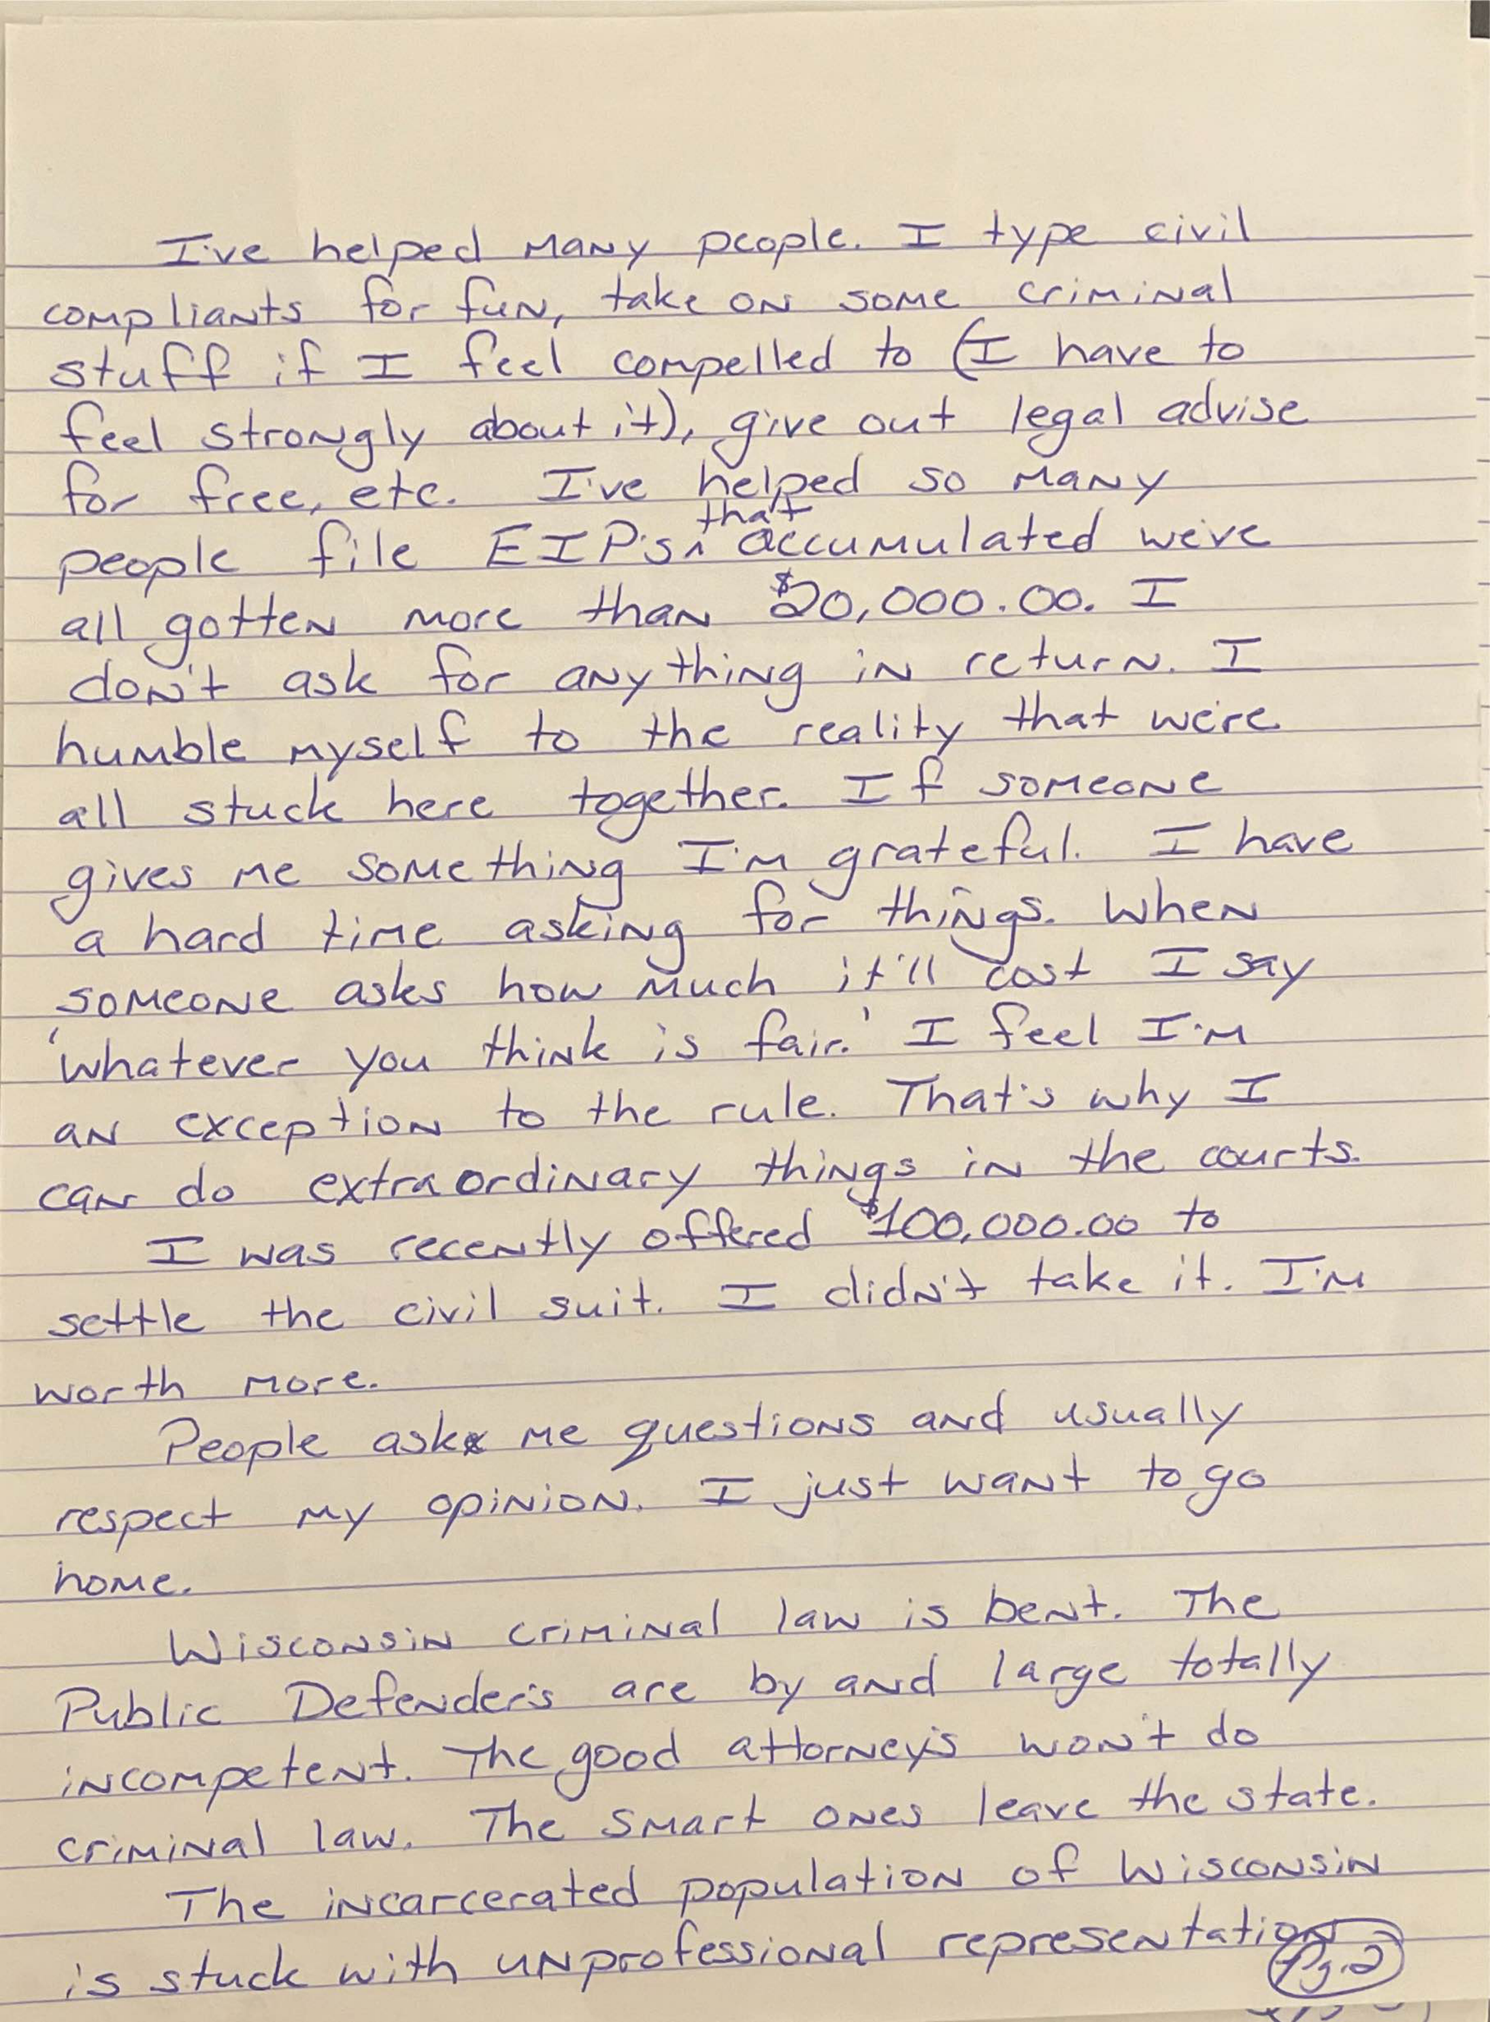 I've helped many people. I type civil
compliants for fun, take on some criminal
stuff if I feel compelled to (I have to
feel strongly about it), give out legal advise
for free, etc. I've helped so many
people file EIP's, that accumulated we've
all gotten more than $20,000.00. I
don't ask for anything in return. I
humble myself to the reality that we're
all stuck here together. If someone
gives me something I'm grateful. I have
a hard time asking for things. When
someone asks how much it'll cost I say
'whatever you think is fair.' I feel I'm
an exception to the rule. That's why I
can do extraordinary things in the courts.
I was recently offered $100,000.00 to
settle the civil suit. I didn't take it. I'm
worth more.
People ask me questions and usually
respect my opinion. I just want to go
home.
Wisconsin criminal law is bent. The
Public Defender's are by and large totally
incompetent. The good attorney's won't do
criminal law. The smart ones leave the state.
The incarcerated population of Wisconsin
is stuck with unprofessional representation
Pg.2